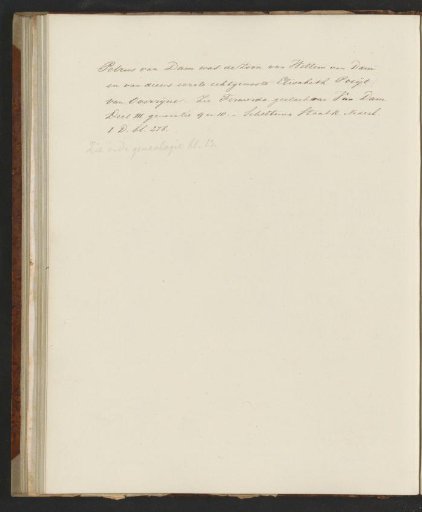 Petrus van Dam was de zoon van Willem van Dam
en van diens eerste echtgenoote Elisabeth
van Zie geslacht van Dam
Deel III generatie 9 en 10. - Scheltema Staatk. Nederl.
1 D. bl. 278.
Zie ook genealogie bl.